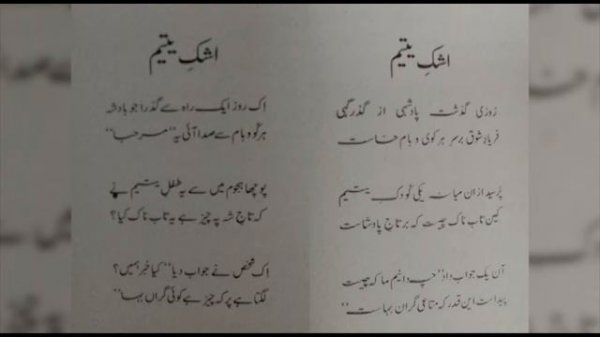 اشکِ یتیم
روزی گذشت پادشہی از گذرگہی
فریادِ شوق برسرِ ہر کوی و بام خاست
پُرسید ازان میانہ یکی کودک یتیم
کین تاب ناک چیست کہ بر تاجِ پادشاست
آن یک جواب داد "چہ دانیم ما کہ چیست
پیداست این قدر کہ متاعی گران بہاست"
اشکِ یتیم
اِک روز ایک راہ سے گذرا جو بادشہ
ہر کُو و بام سے صدا آئی یہ "مرحبا"
پوچھا ہجوم میں سے یہ طفلِ یتیم نے
کہ تاجِ شہ پہ چیز ہے یہ تاب ناک کیا؟
اِک شخص نے جواب دیا "کیا خبر ہمیں؟
لگتا ہے پر کہ چیز ہے کوئی گراں بہا"